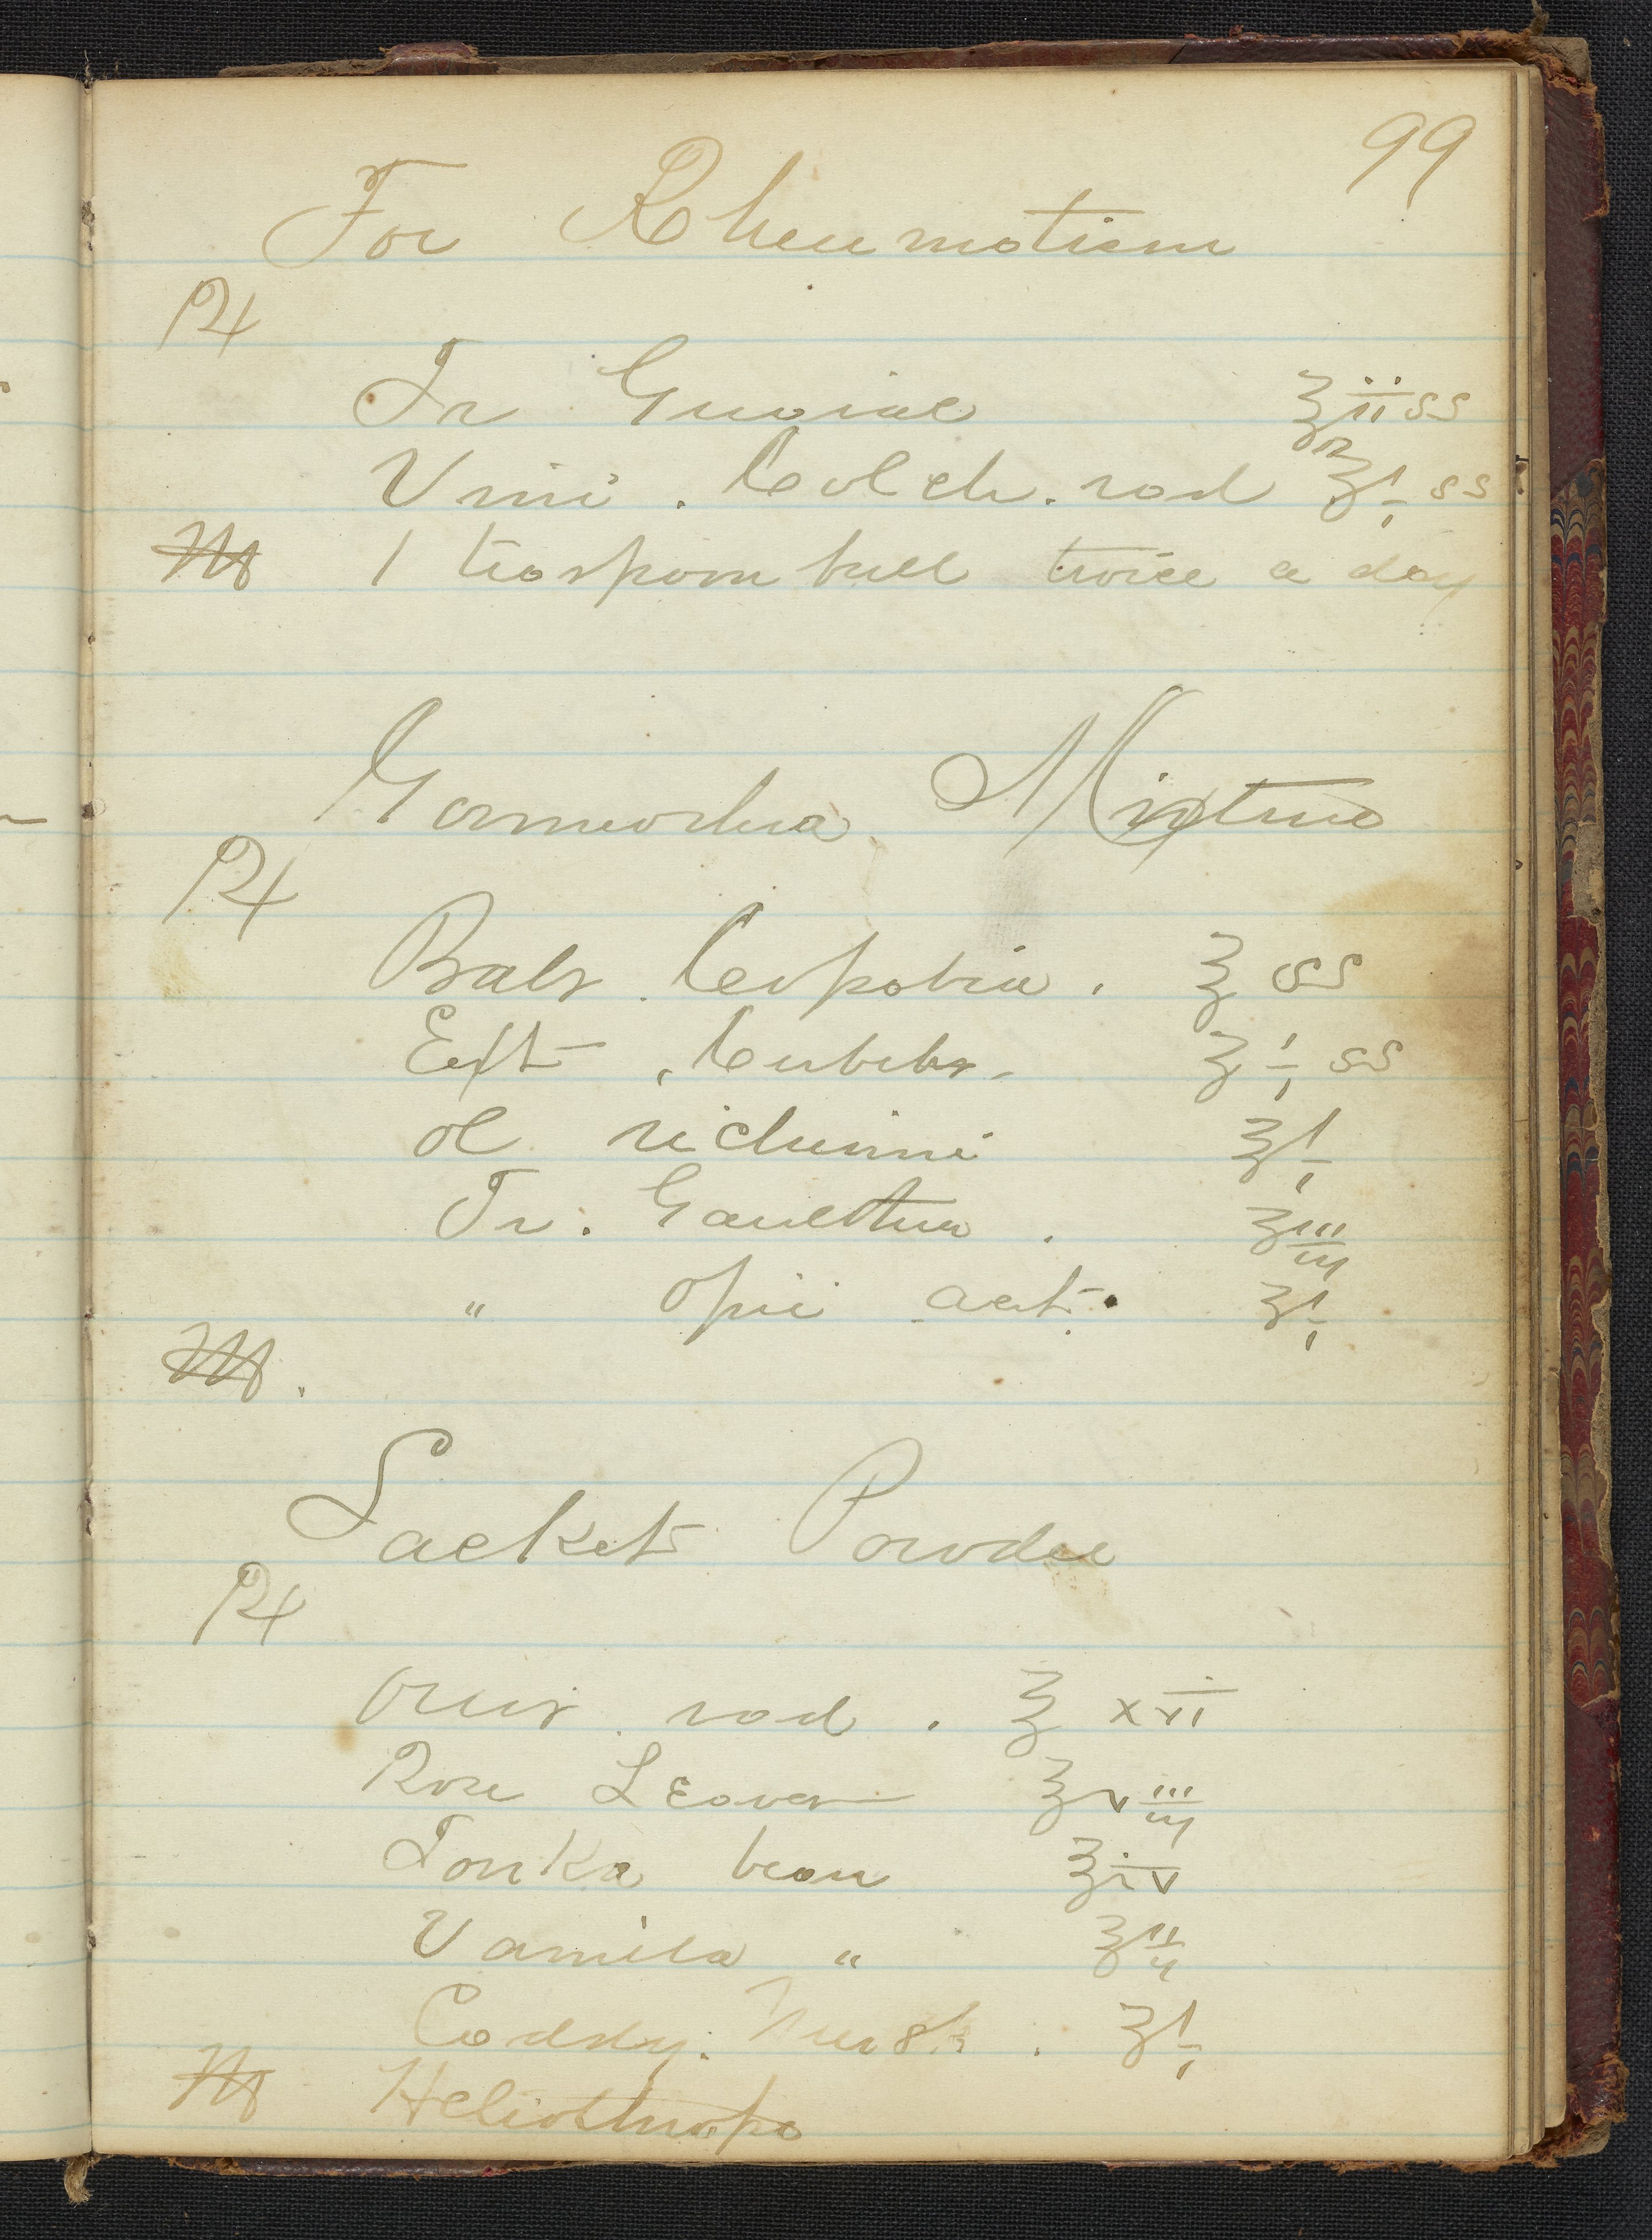 99
For Rheumotism
℞
Tr Guaiac ℥iiss
Vini. Colch. rad ℥i ss
M 1 teaspoon full twice a day
Gonneorhea Mixture
℞
Bals. Copabia. ℥ ss
Ext. Cubebs. ʒi ss
ol richinni ʒi
Tr. Gaultheria. ʒiii
" Opii act. ʒi
M.
Sacket Powder
℞
Orris rad. ℥ xvi
Rose Leaves ℥viii
Tonka bean ℥iv
Vanilla " ℥ii
ʒi
M Heliothrope